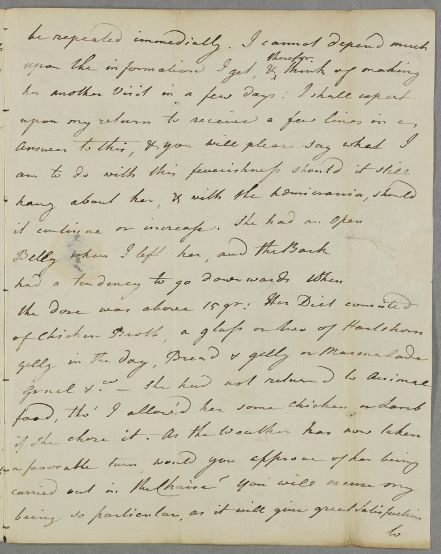 be repeated immedially. I cannot depend much
upon the information I get, & therefor. think of making
her another Visit in a few days: I shall expect
upon my return to receive a few lines in
answer to this, & you will please say what I
am to do with this feverishness should it still
hang about her, & with the hemicrania, should
it continue or increase. She had an open
Belly when I left her, and the Bark
had a tendency to go downwards when
the dose was above 15 gr: Her Diet consisted
of Chicken Broth, a glass or two of Hartshorn
gelly in the day, Bread & gelly or Marmalade
Gruel &.ca — She had not return'd to Animal
food, tho' I allow'd her some Chicken, or Lamb
if she chose it. As the Weather has now taken
a favorable turn, would you approve of her being
carried out in the Chaise? You will excuse my
being so particular, as it will give great Satisfaction
to